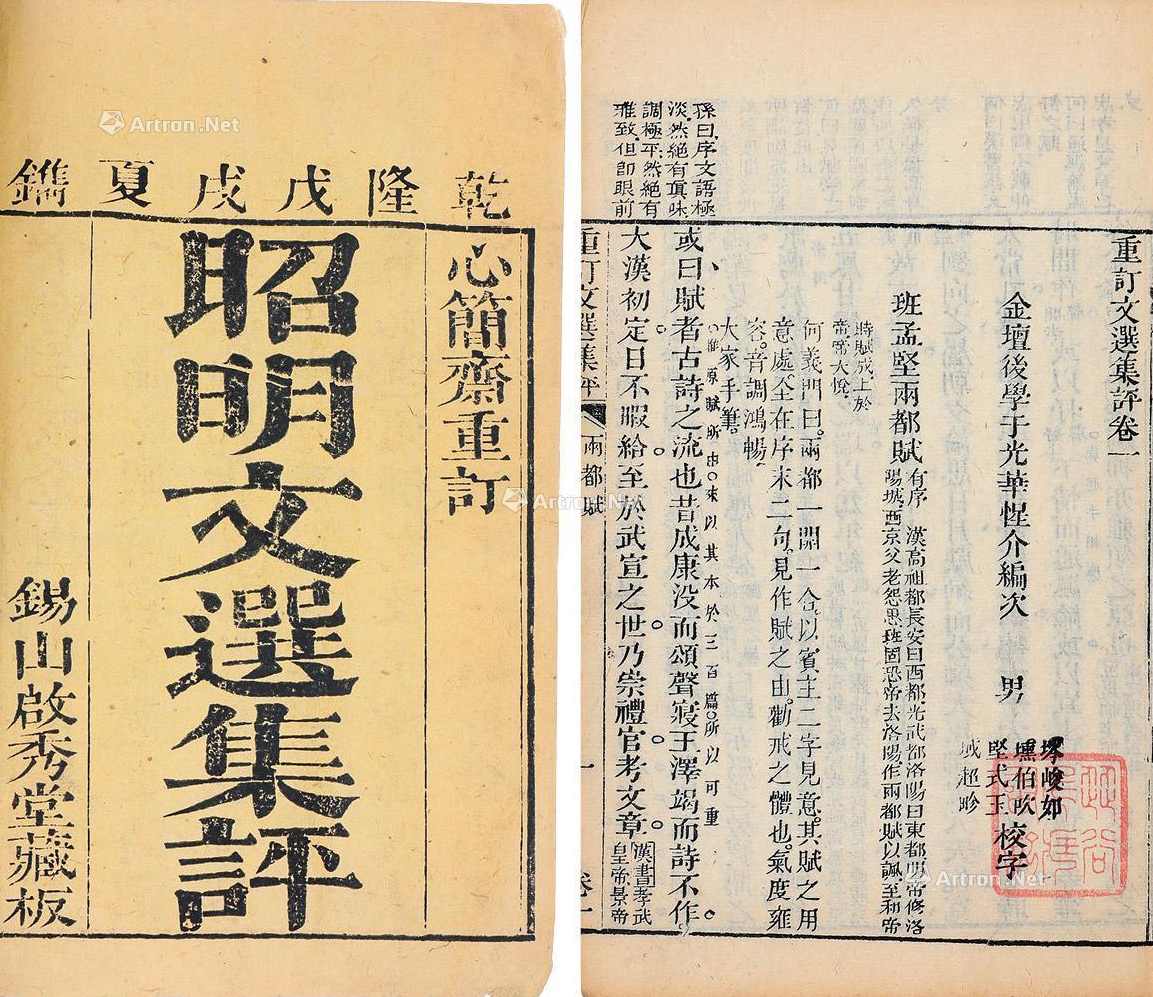 乾隆戊戌夏鐫
心簡齋重訂
昭明文選集評
錫山啟秀堂藏板
重訂文選集評卷一
金壇後學于光華惺介編次 男
堅式玉
校字
班孟堅兩都賦
有序 漢高祖都長安曰西都光武都洛陽曰東都明帝修洛
陽城西京父老怨思班固恐帝去洛陽作兩都賦以諷至和帝
時賦成上於
帝帝大悅
何義門曰兩都一開一合以賓主二字見意其賦之用
意處全在序末二句見作賦之由勸戒之體也氣度雍
容音調鴻暢
大家手筆
惟原賦所由來以其本於三百篇所以可重
或曰賦者古詩之流也昔成康没而頌聲寢王澤竭而詩不作
大漢初定日不暇給至於武宣之世乃崇禮官考文章
漢書孝武
皇帝景帝
孫曰序文語極
淡然絕有真味
調極平然絕有
雅致但即眼前
重訂文選集評 兩都賦 一 卷一
Artron.Net
Artron.Net
Artron.Net
Artron.Net